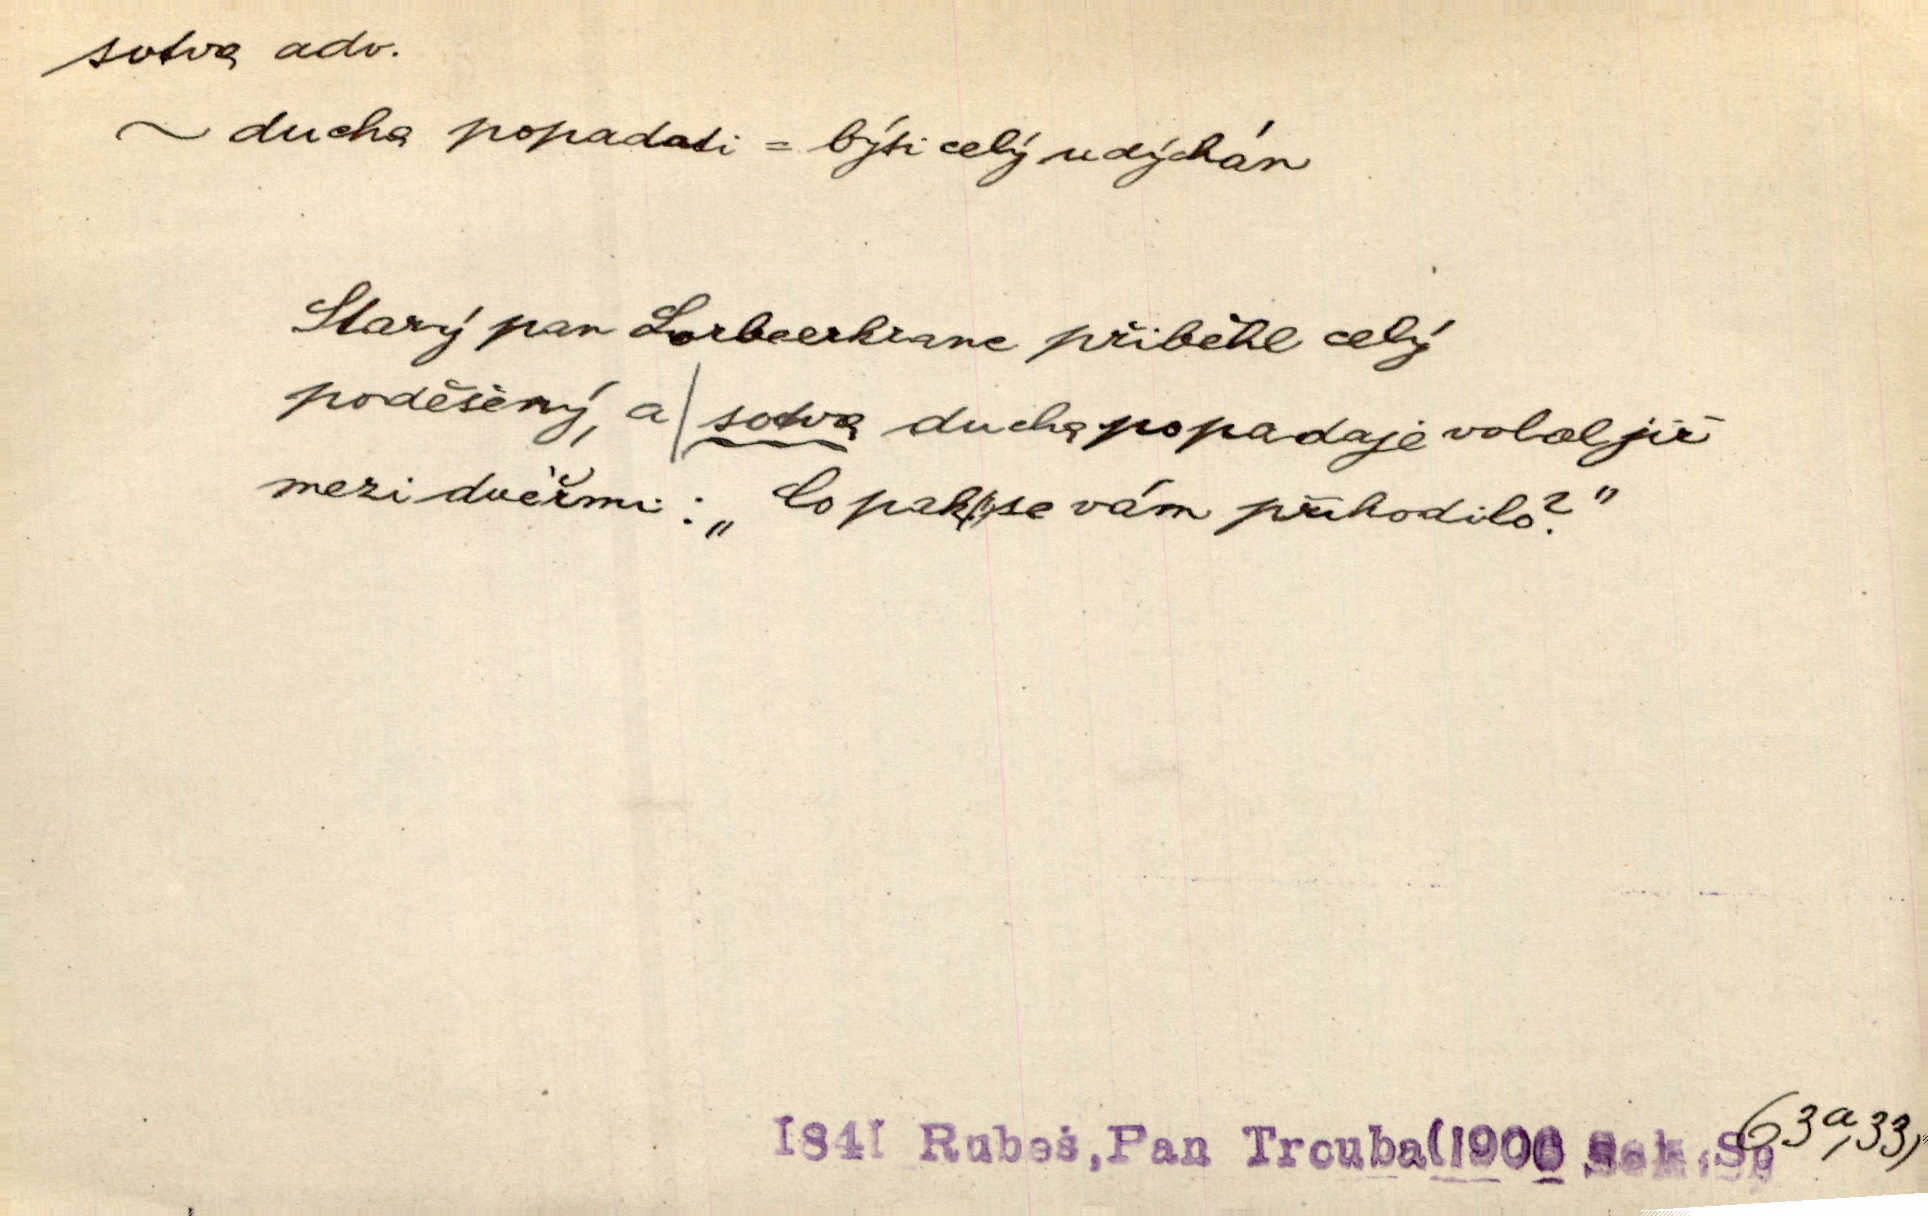 sotva adv.
~ ducha popadati = býti celý udýchán
Starý pan Lorbeerkranc přiběhl celý
poděšený, a | sotva ducha popadaje volal již
mezi dveřmi: „Co pak se vám přihodilo?"
1841 Rubeš, Pan Trouba (1906 Sp
63a, 33)